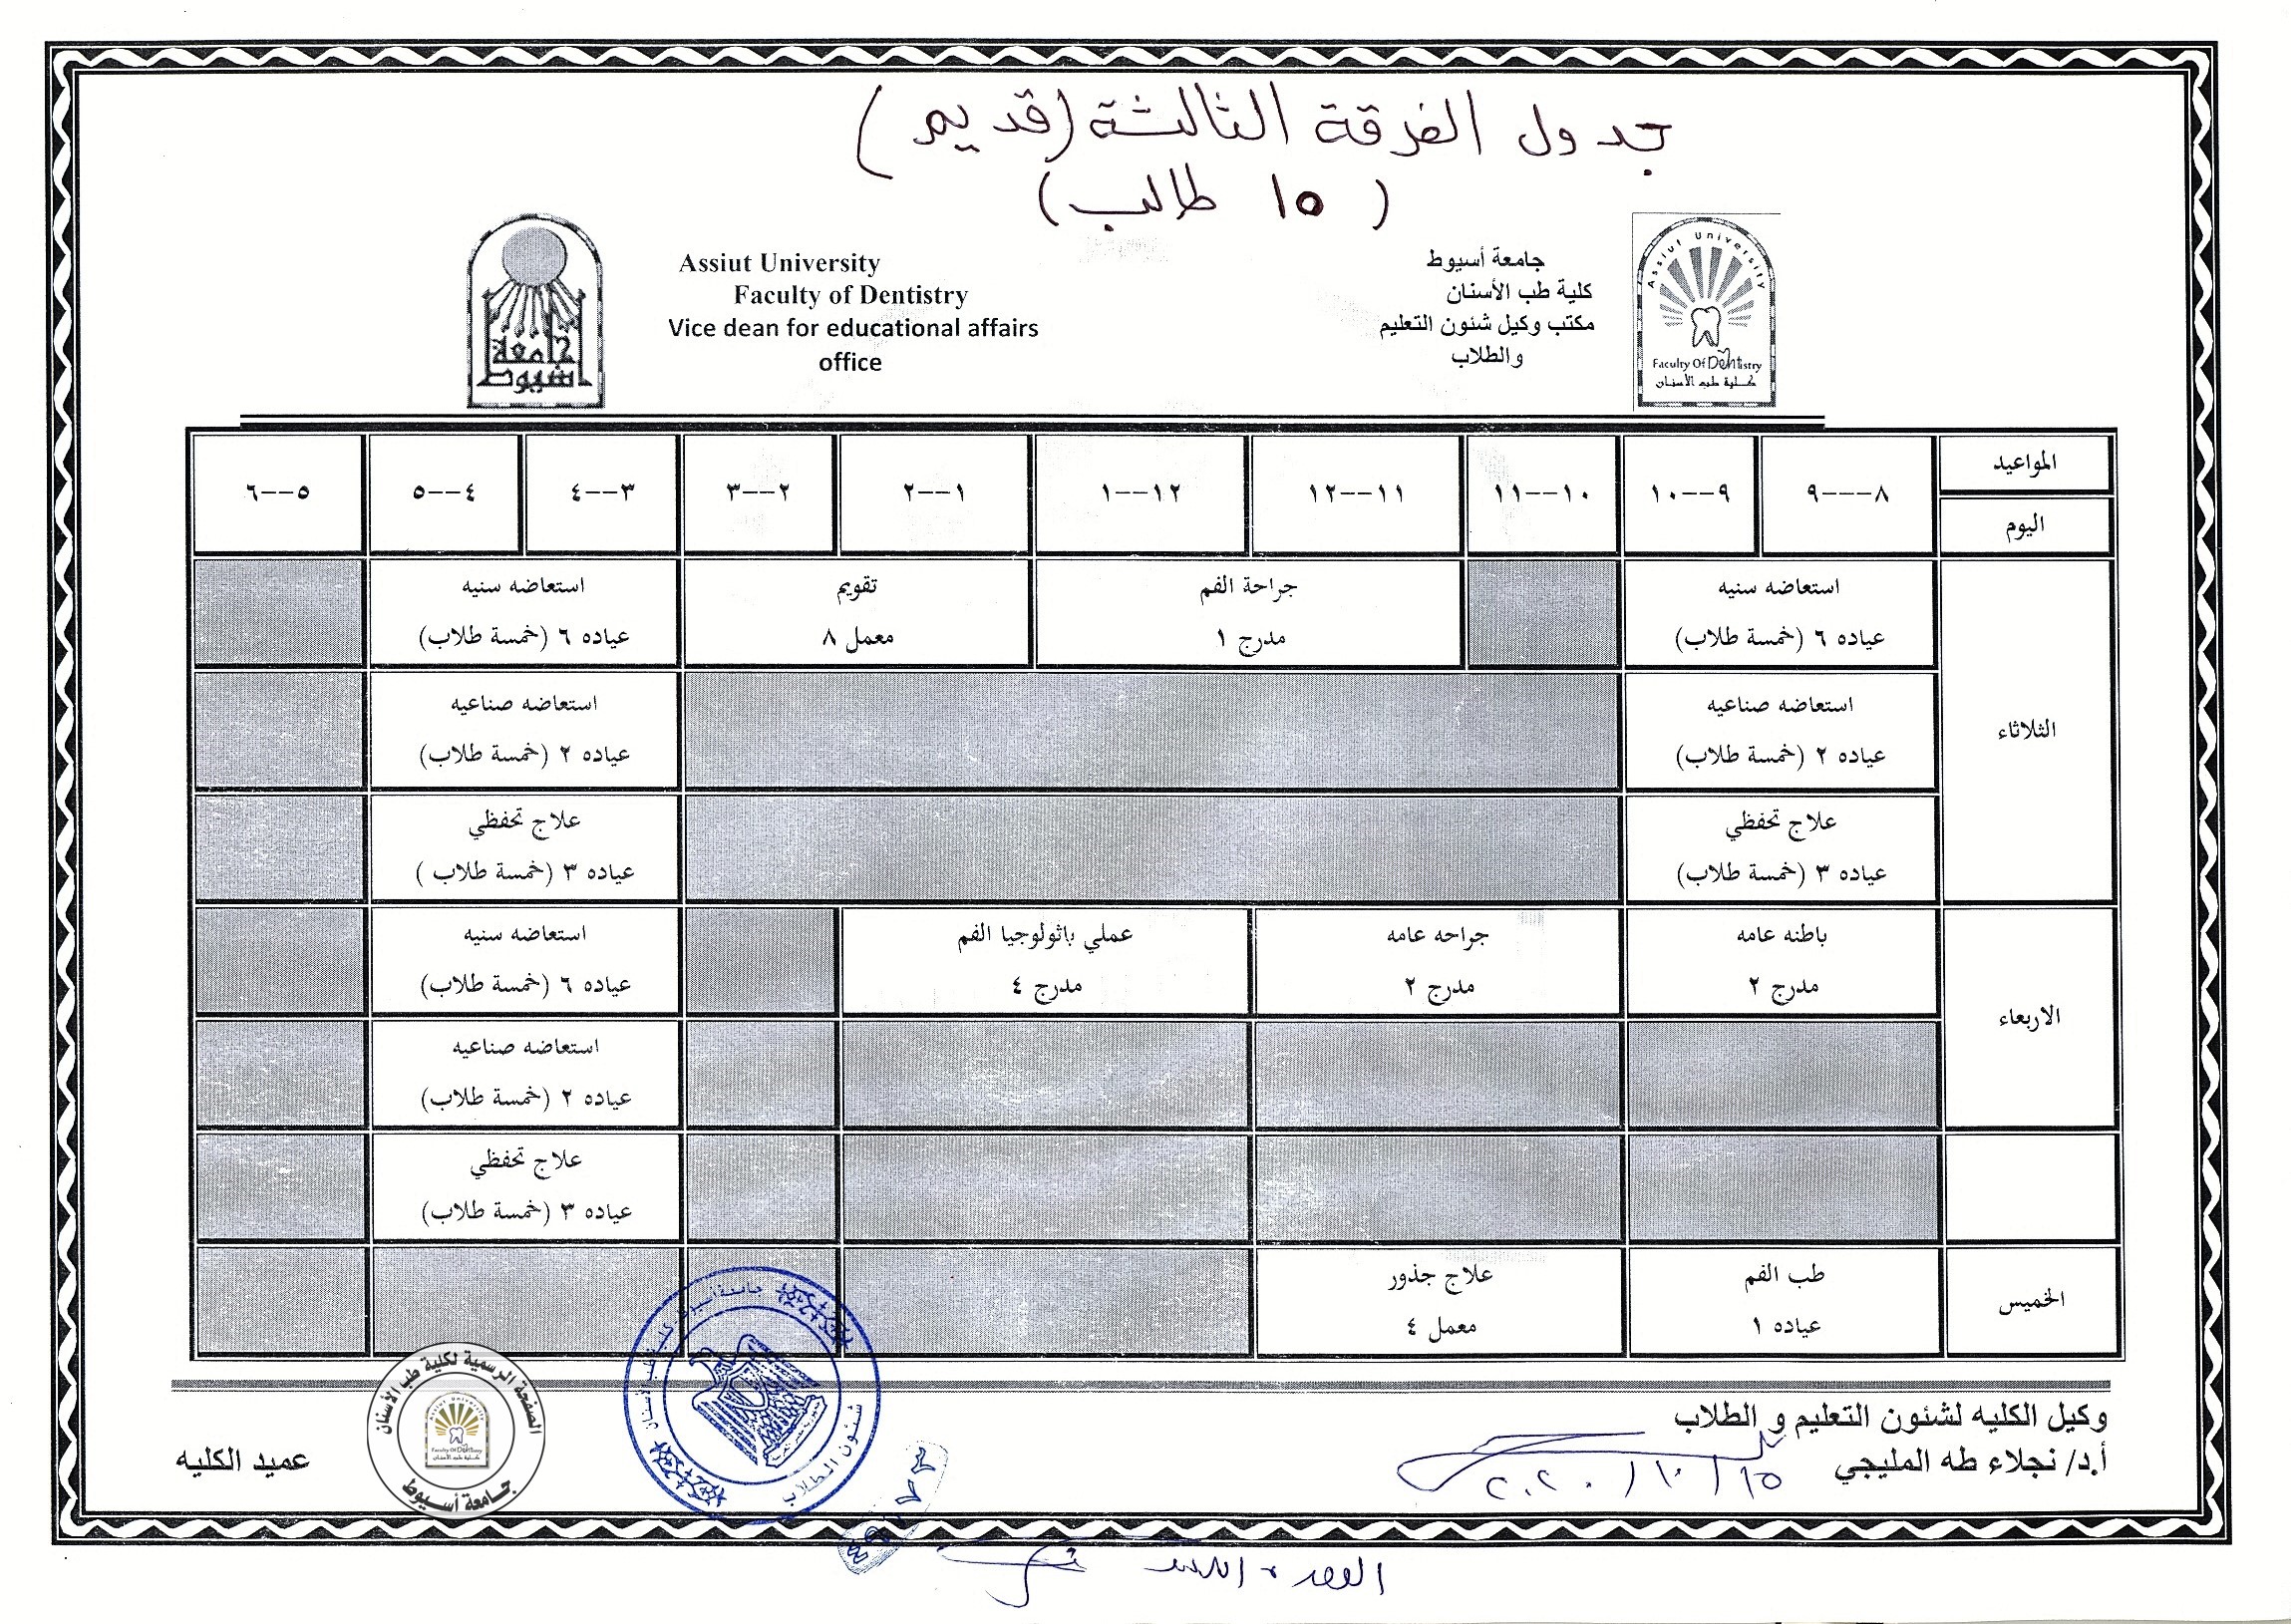 جدول الفرقة الثالثة (قديم)
(١٥ طالب)
جامعة أسيوط
كلية طب الأسنان
مكتب وكيل شئون التعليم
والطلاب
Assiut University
Faculty of Dentistry
Vice dean for educational affairs
office
Assiut University
Faculty Of Dentistry
كلية طب الأسنان
جامعة
أسيوط
المواعيد
اليوم
٨---٩
٩--١٠
١٠--١١
١١--١٢
١٢--١
١--٢
٢--٣
٣--٤
٤--٥
٥--٦
الثلاثاء
استعاضه سنيه
عياده ٦ (خمسة طلاب)
جراحة الفم
مدرج ١
تقويم
معمل ٨
استعاضه سنيه
عياده ٦ (خمسة طلاب)
استعاضه صناعيه
عياده ٢ (خمسة طلاب)
استعاضه صناعيه
عياده ٢ (خمسة طلاب)
علاج تحفظي
عياده ٣ (خمسة طلاب)
علاج تحفظي
عياده ٣ (خمسة طلاب )
الاربعاء
باطنه عامه
مدرج ٢
جراحه عامه
مدرج ٢
عملي باثولوجيا الفم
مدرج ٤
استعاضه سنيه
عياده ٦ (خمسة طلاب)
استعاضه صناعيه
عياده ٢ (خمسة طلاب)
علاج تحفظي
عياده ٣ (خمسة طلاب)
الخميس
طب الفم
عياده ١
علاج جذور
معمل ٤
وكيل الكليه لشئون التعليم و الطلاب
أ.د/ نجلاء طه المليجي
٢٠٢٠/١٠/١٥
عميد الكليه
الصفحة الرسمية لكلية طب الأسنان
جامعة أسيوط
جامعة أسيوط
شئون الطلاب